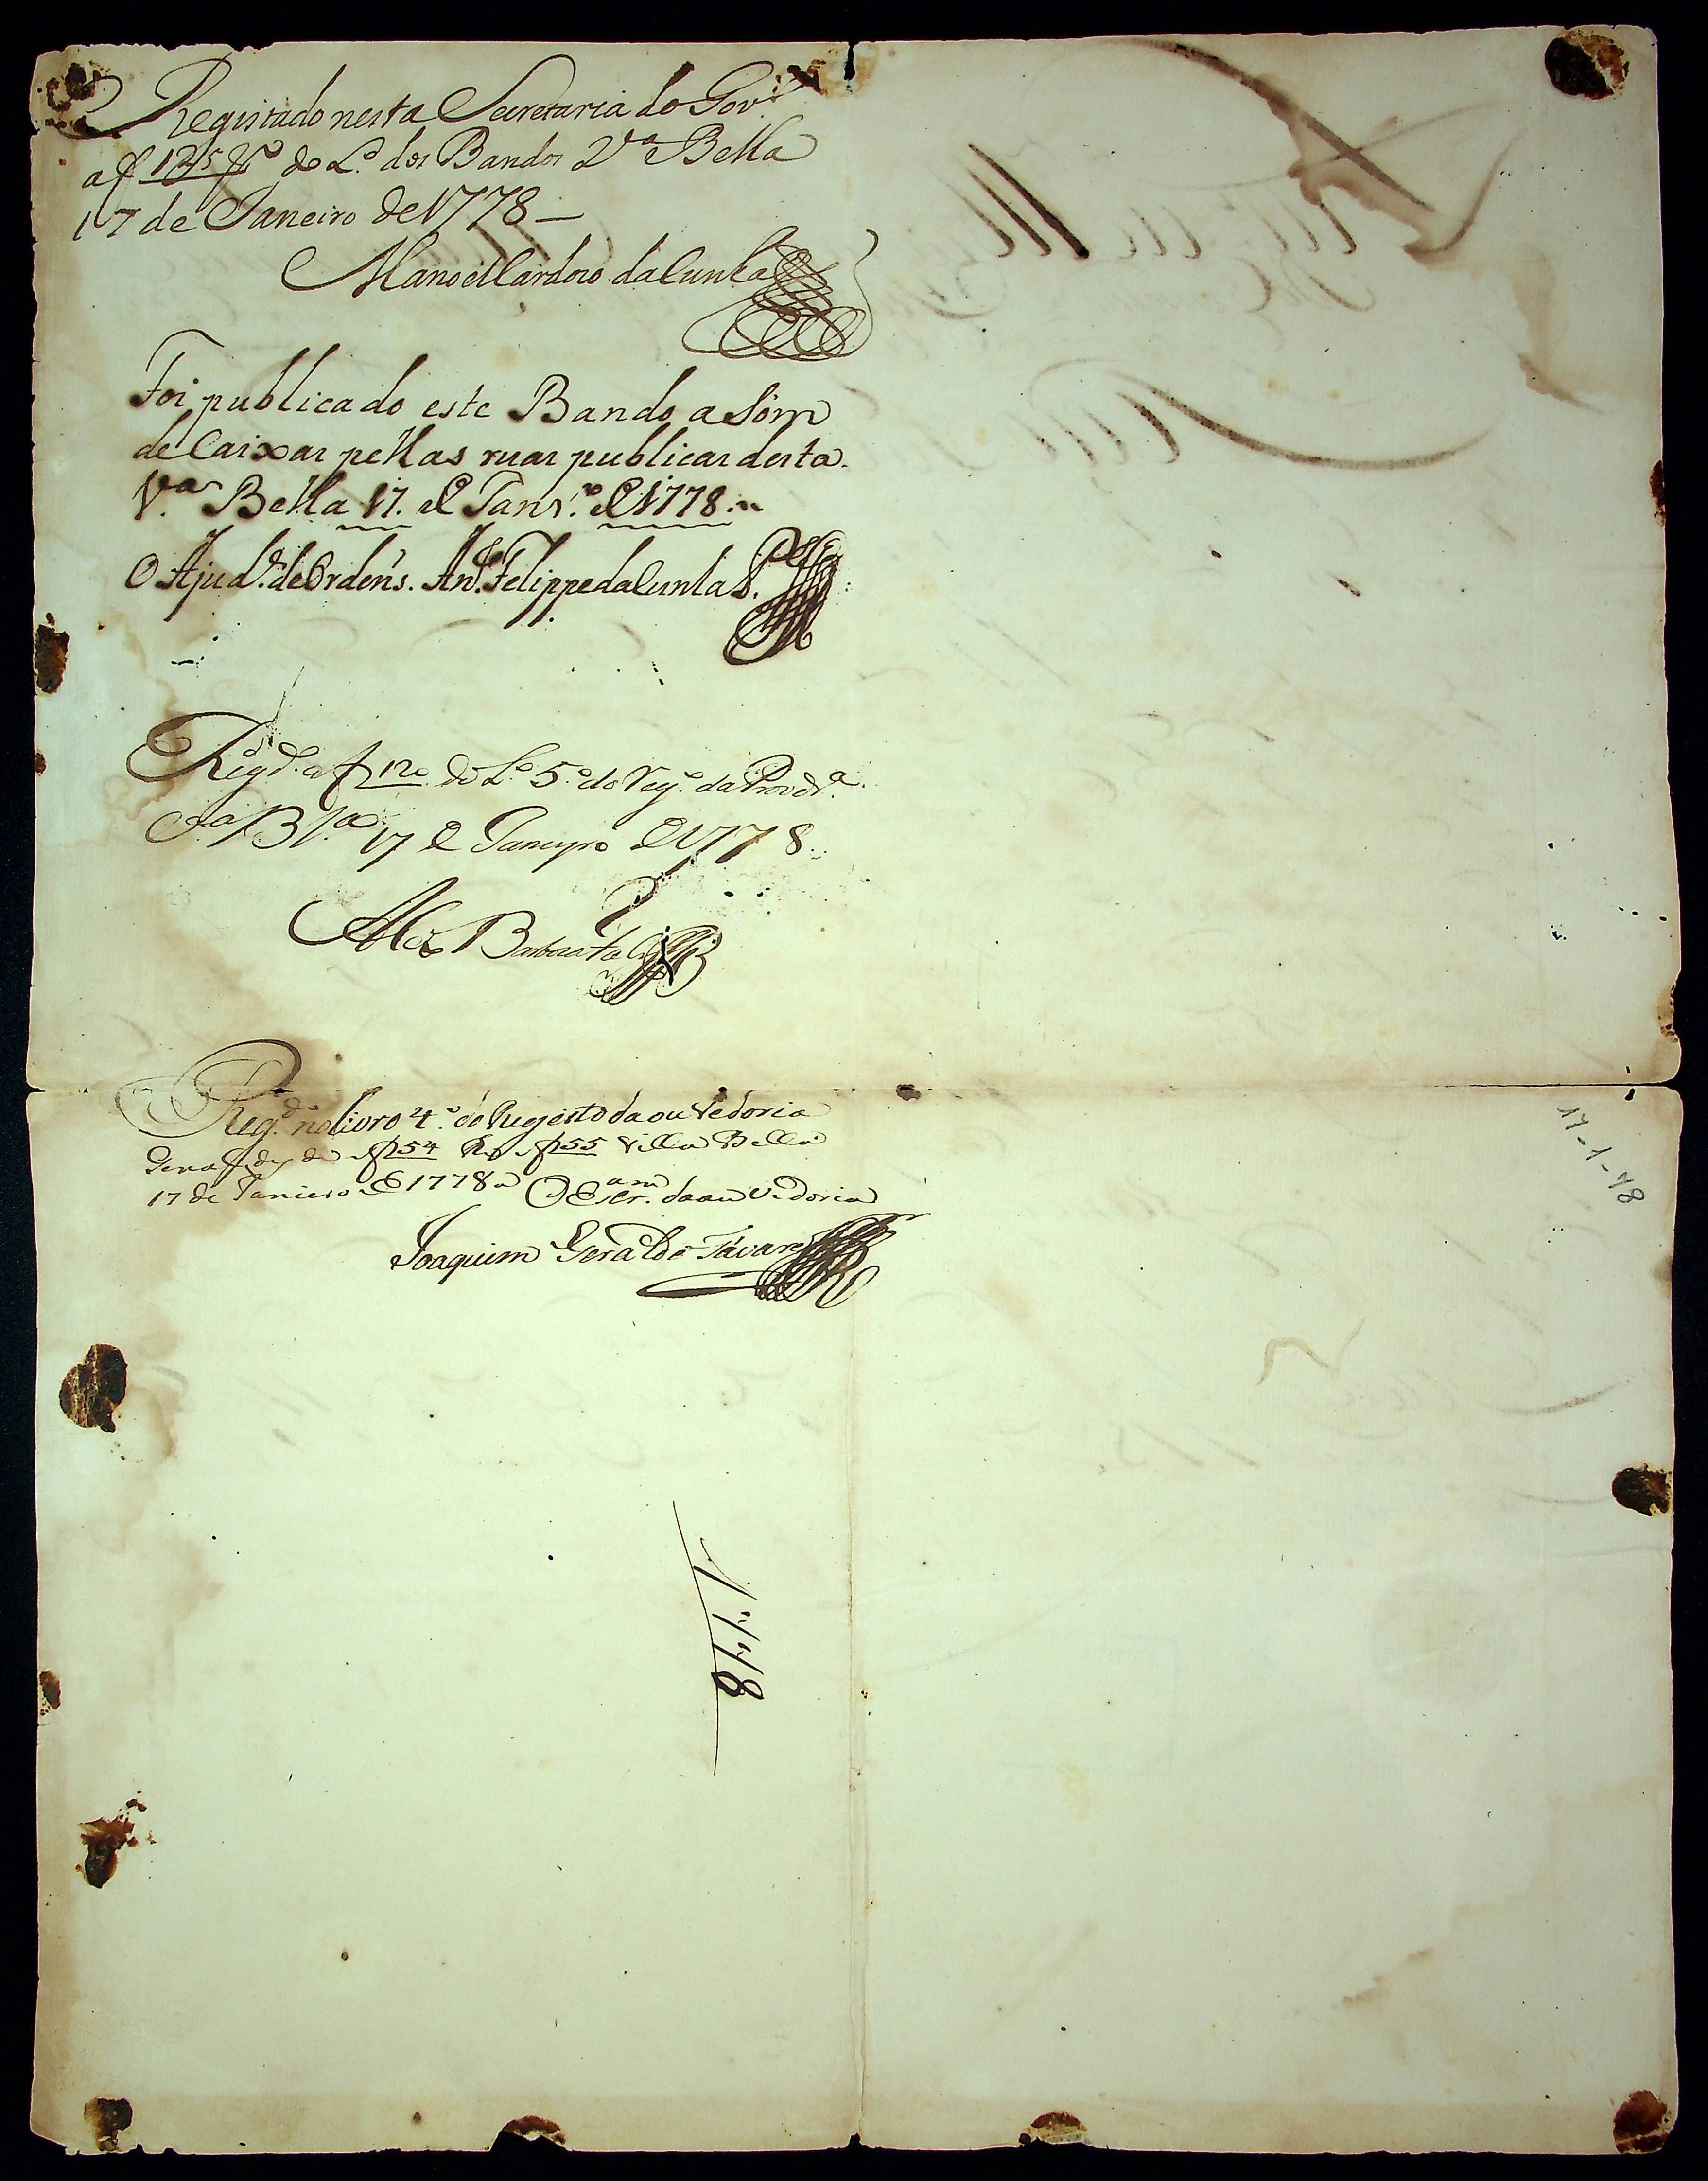 Registado nesta Secretaria do Gov.º
a f 125 do L.º dos Bandos V.ª Bella
17 de Janeiro de 1778 —
Manoel Cardozo da Cunha
Foi publicado este Bando a sóm
de Caixas pellas ruas publicas desta
V.ª Bella 17. de Janr.º de 1778.
O Ajud.e de Ordens. Ant.º Felippe da Cunha
Regd.º a f 120 do L.º 5.º do Reg.º da Proved.ª
V.ª B.ª 17 de Janeyro de 1778.
Reg.do no livro 4.º do Registo da ouvedoria
Geral de f 54 f 55 Villa Bella
17 de Janieiro de 1778 O Escr.am da ouvedoria
Joaquim Geraldo Tavares
1778
17-1-78